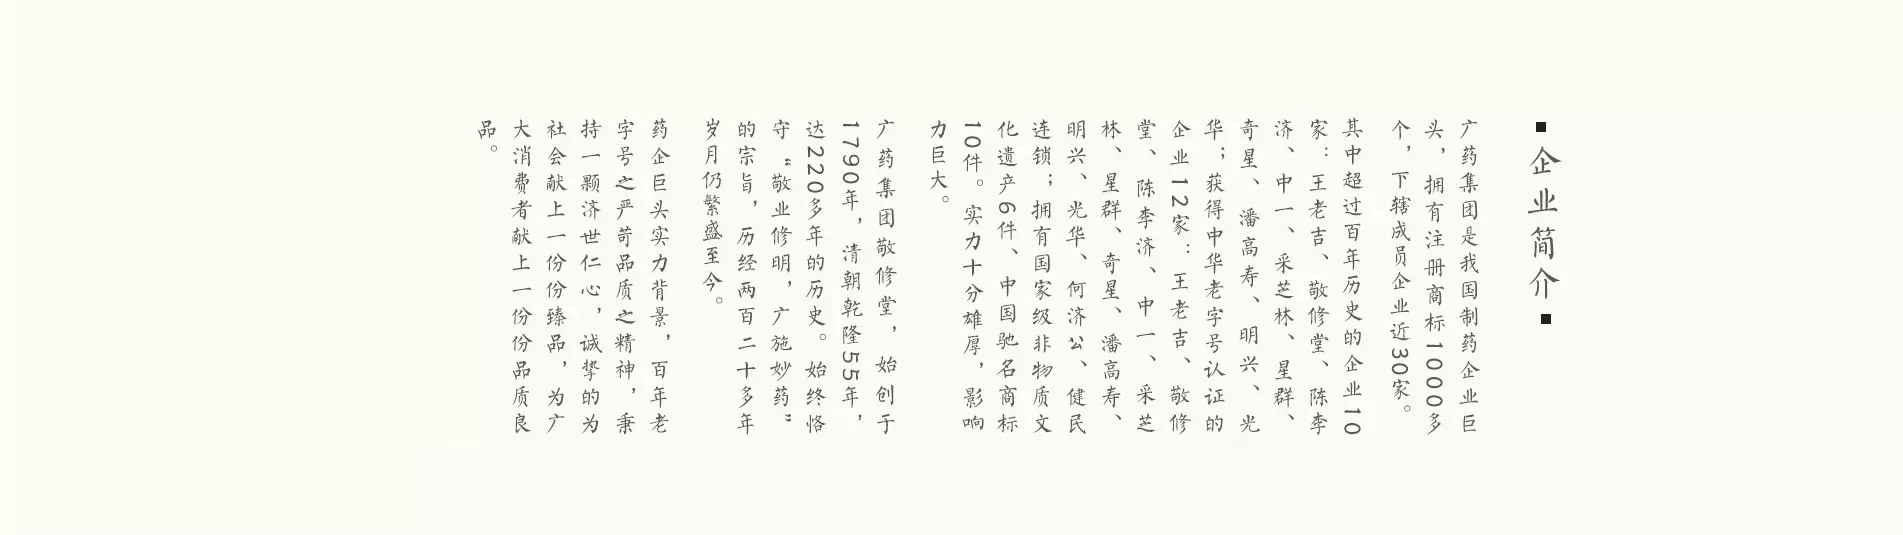 ▪企业简介▪
广药集团是我国制药企业巨
头，拥有注册商标1000多
个，下辖成员企业近30家。
其中超过百年历史的企业10
家：王老吉、敬修堂、陈李
济、中一、采芝林、星群、
奇星、潘高寿、明兴、光
华；获得中华老字号认证的
企业12家：王老吉、敬修
堂、陈李济、中一、采芝
林、星群、奇星、潘高寿、
明兴、光华、何济公、健民
连锁；拥有国家级非物质文
化遗产6件、中国驰名商标
10件。实力十分雄厚，影响
力巨大。
广药集团敬修堂，始创于
1790年，清朝乾隆55年，
达220多年的历史。始终恪
守“敬业修明，广施妙药”
的宗旨，历经两百二十多年
岁月仍繁盛至今。
药企巨头实力背景，百年老
字号之严苛品质之精神，秉
持一颗济世仁心，诚挚的为
社会献上一份份臻品，为广
大消费者献上一份份品质良
品。